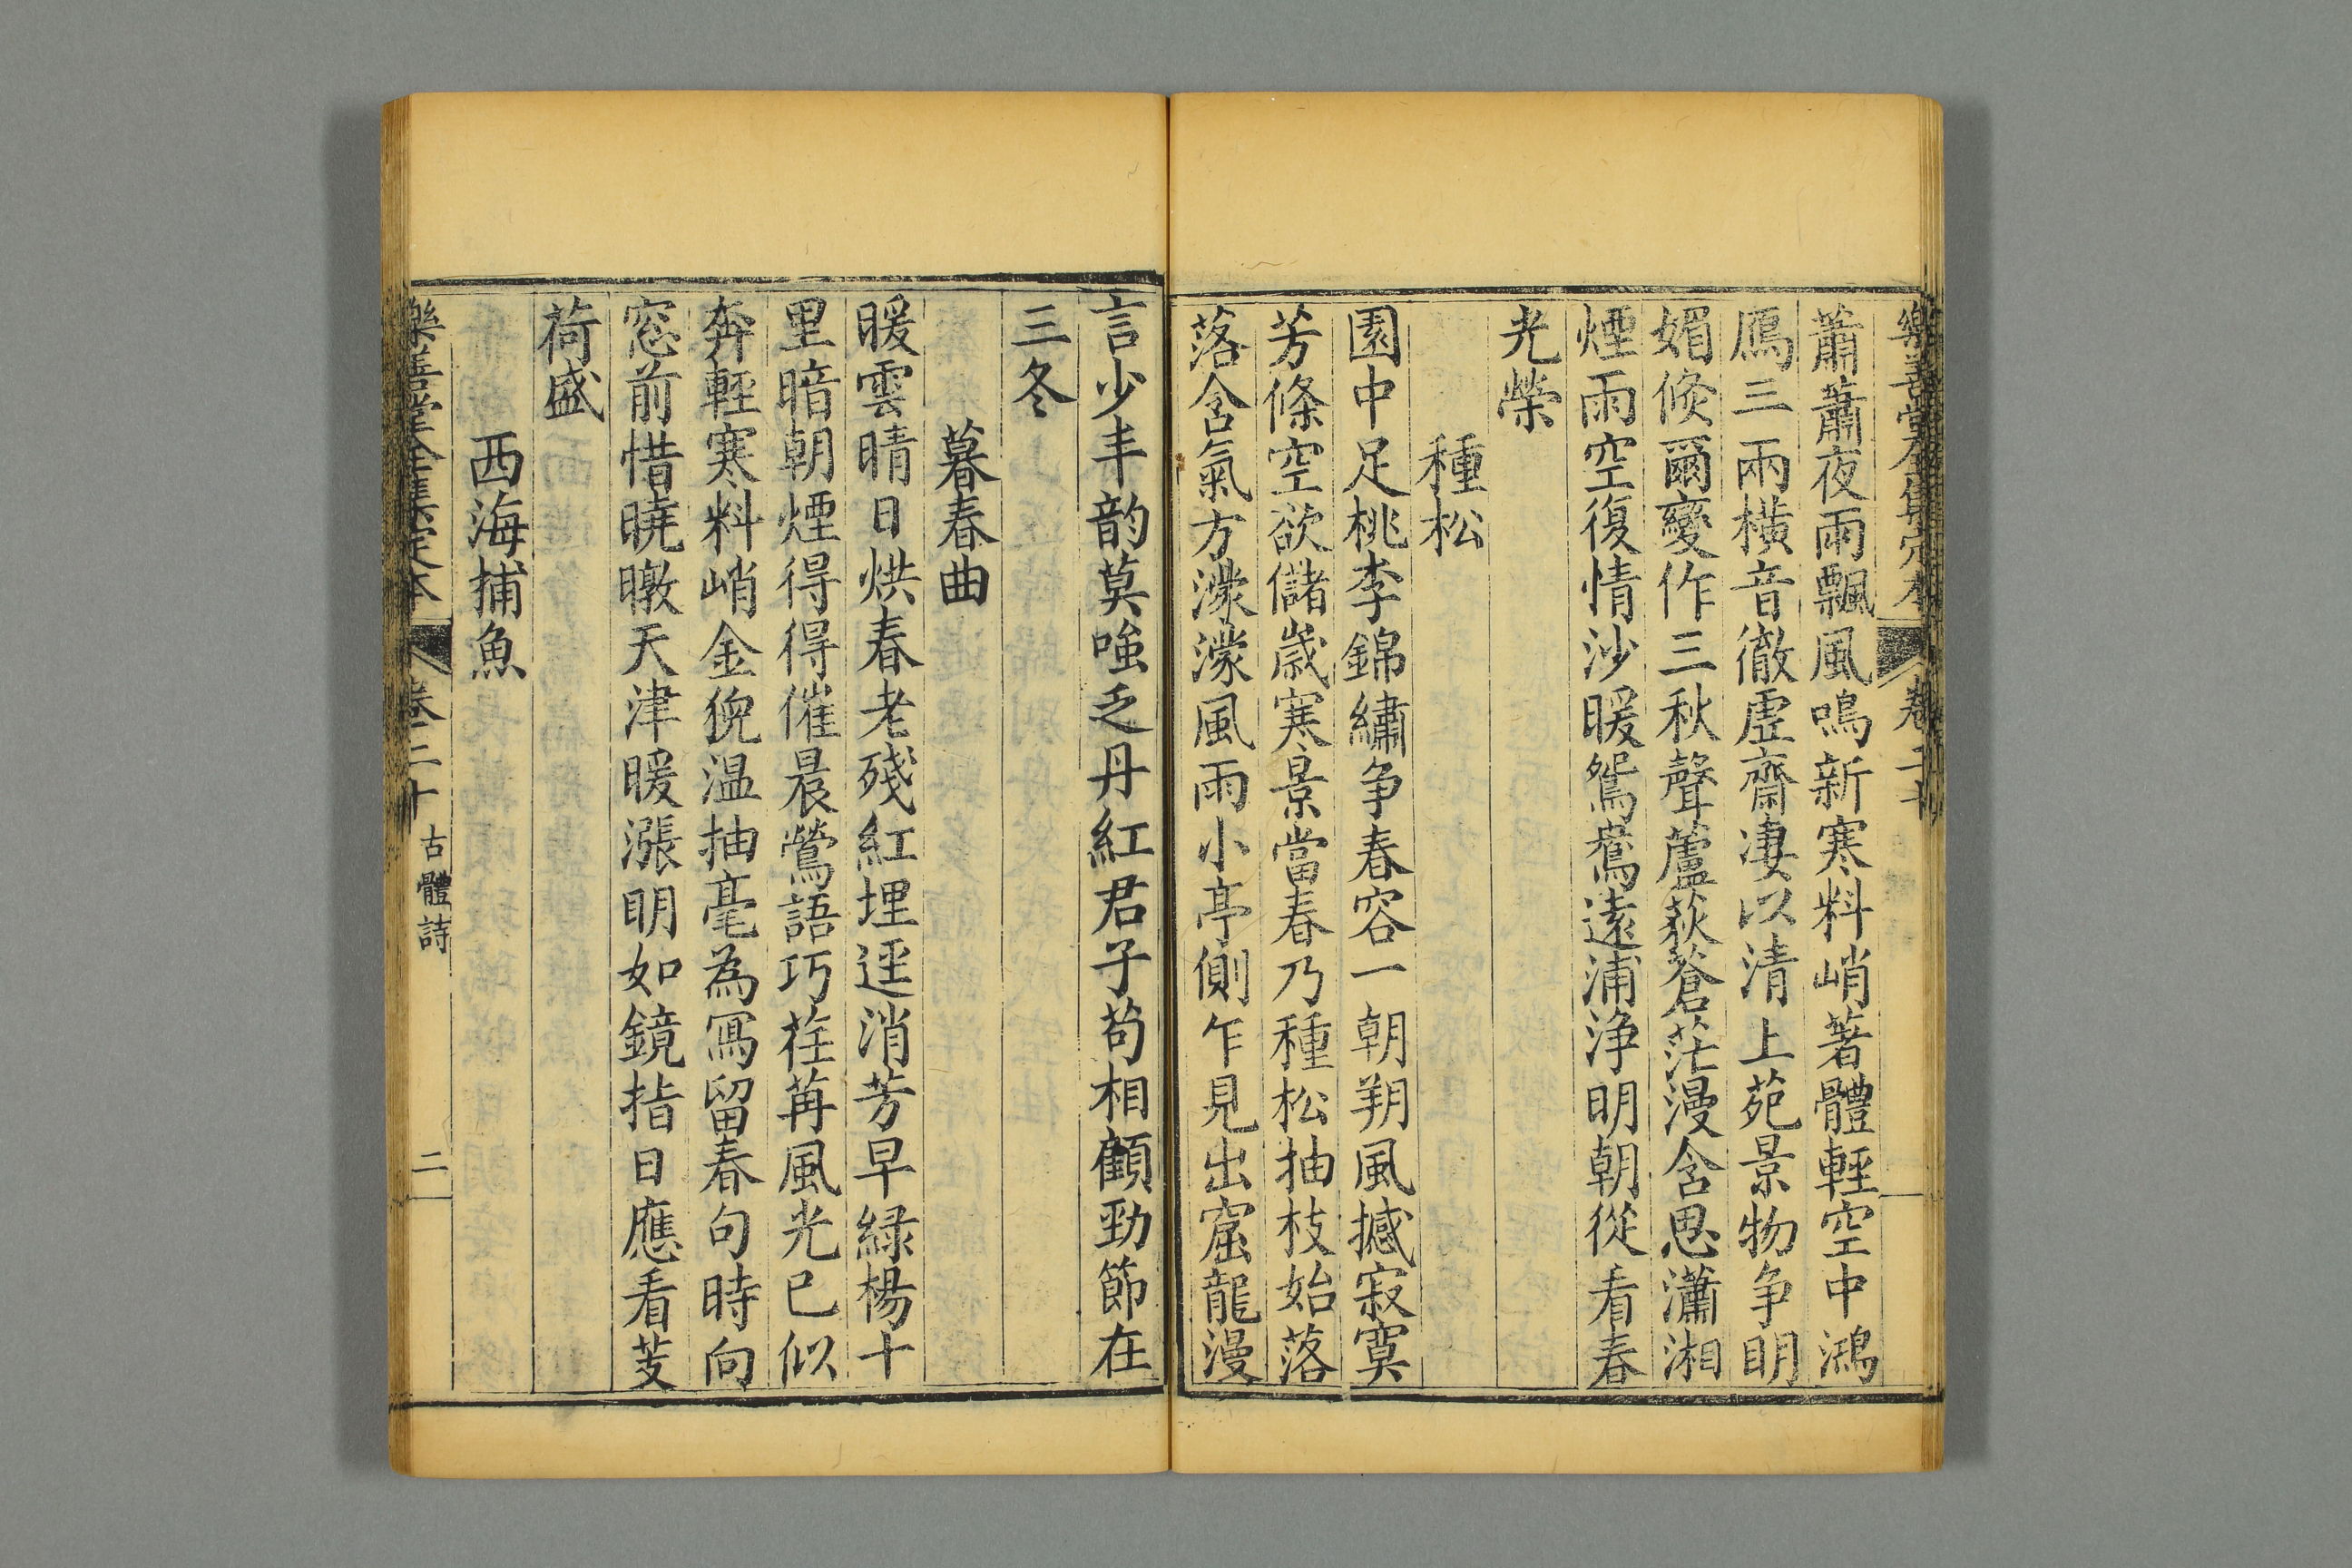 樂善堂全集定本 卷二十
蕭蕭夜雨飄風鳴新寒料峭著體輕空中鴻
鴈三兩橫音徹虛齋凄以清上苑景物争明
媚倐爾變作三秋聲蘆荻蒼茫漫含思瀟湘
煙雨空復情沙暖鴛鴦遠浦浄明朝從看春
光榮
種松
園中足桃李錦繡争春容一朝朔風撼寂寞
芳條空欲儲歲寒景當春乃種松抽枝始落
落含氣方濛濛風雨小亭側乍見出窟龍漫
言少丰韵莫嗤乏丹紅君子苟相顧勁節在
三冬
暮春曲
暖雲晴日烘春老殘紅埋逕消芳早綠楊十
里暗朝煙得得催晨鶯語巧荏苒風光已似
奔輕寒料峭金猊温抽毫為寫留春句時向
窓前惜曉暾天津暖漲明如鏡指日應看芰
荷盛
西海捕魚
樂善堂全集定本 卷二十 古體詩 二